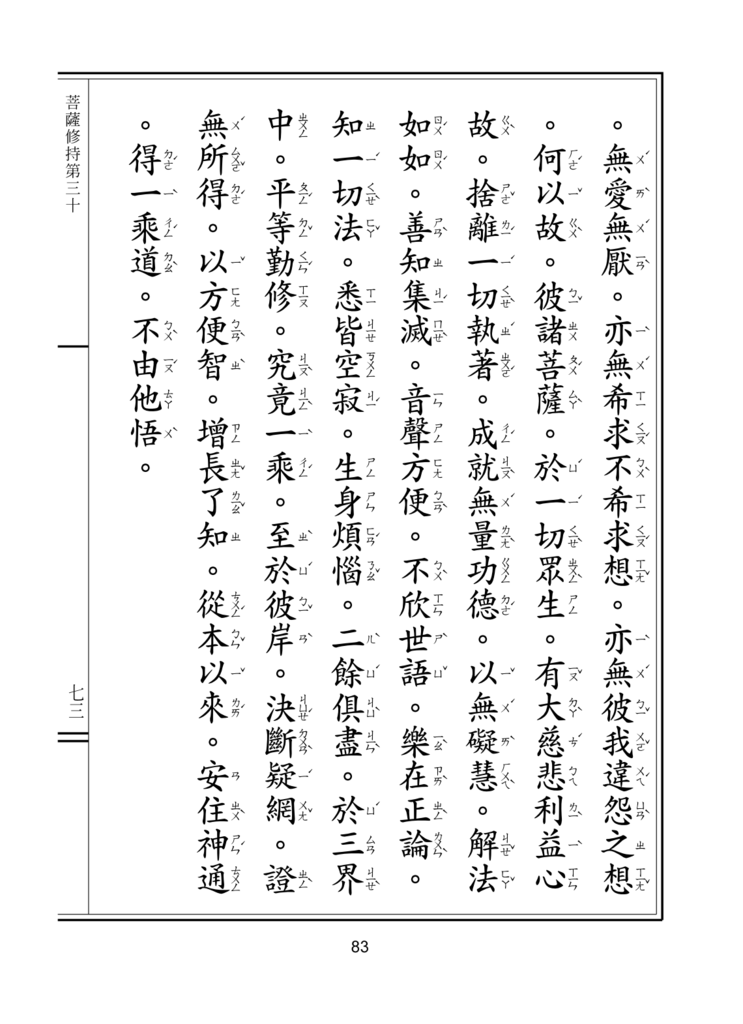 。無愛無厭。亦無希求不希求想。亦無彼我違怨之想
。何以故。彼諸菩薩。於一切眾生。有大慈悲利益心
故。捨離一切執著。成就無量功德。以無礙慧。解法
如如。善知集滅。音聲方便。不欣世語。樂在正論。
知一切法。悉皆空寂。生身煩惱。二餘俱盡。於三界
中。平等勤修。究竟一乘。至於彼岸。決斷疑網。證
無所得。以方便智。增長了知。從本以來。安住神通
。得一乘道。不由他悟。
菩薩修持第三十
七三
83